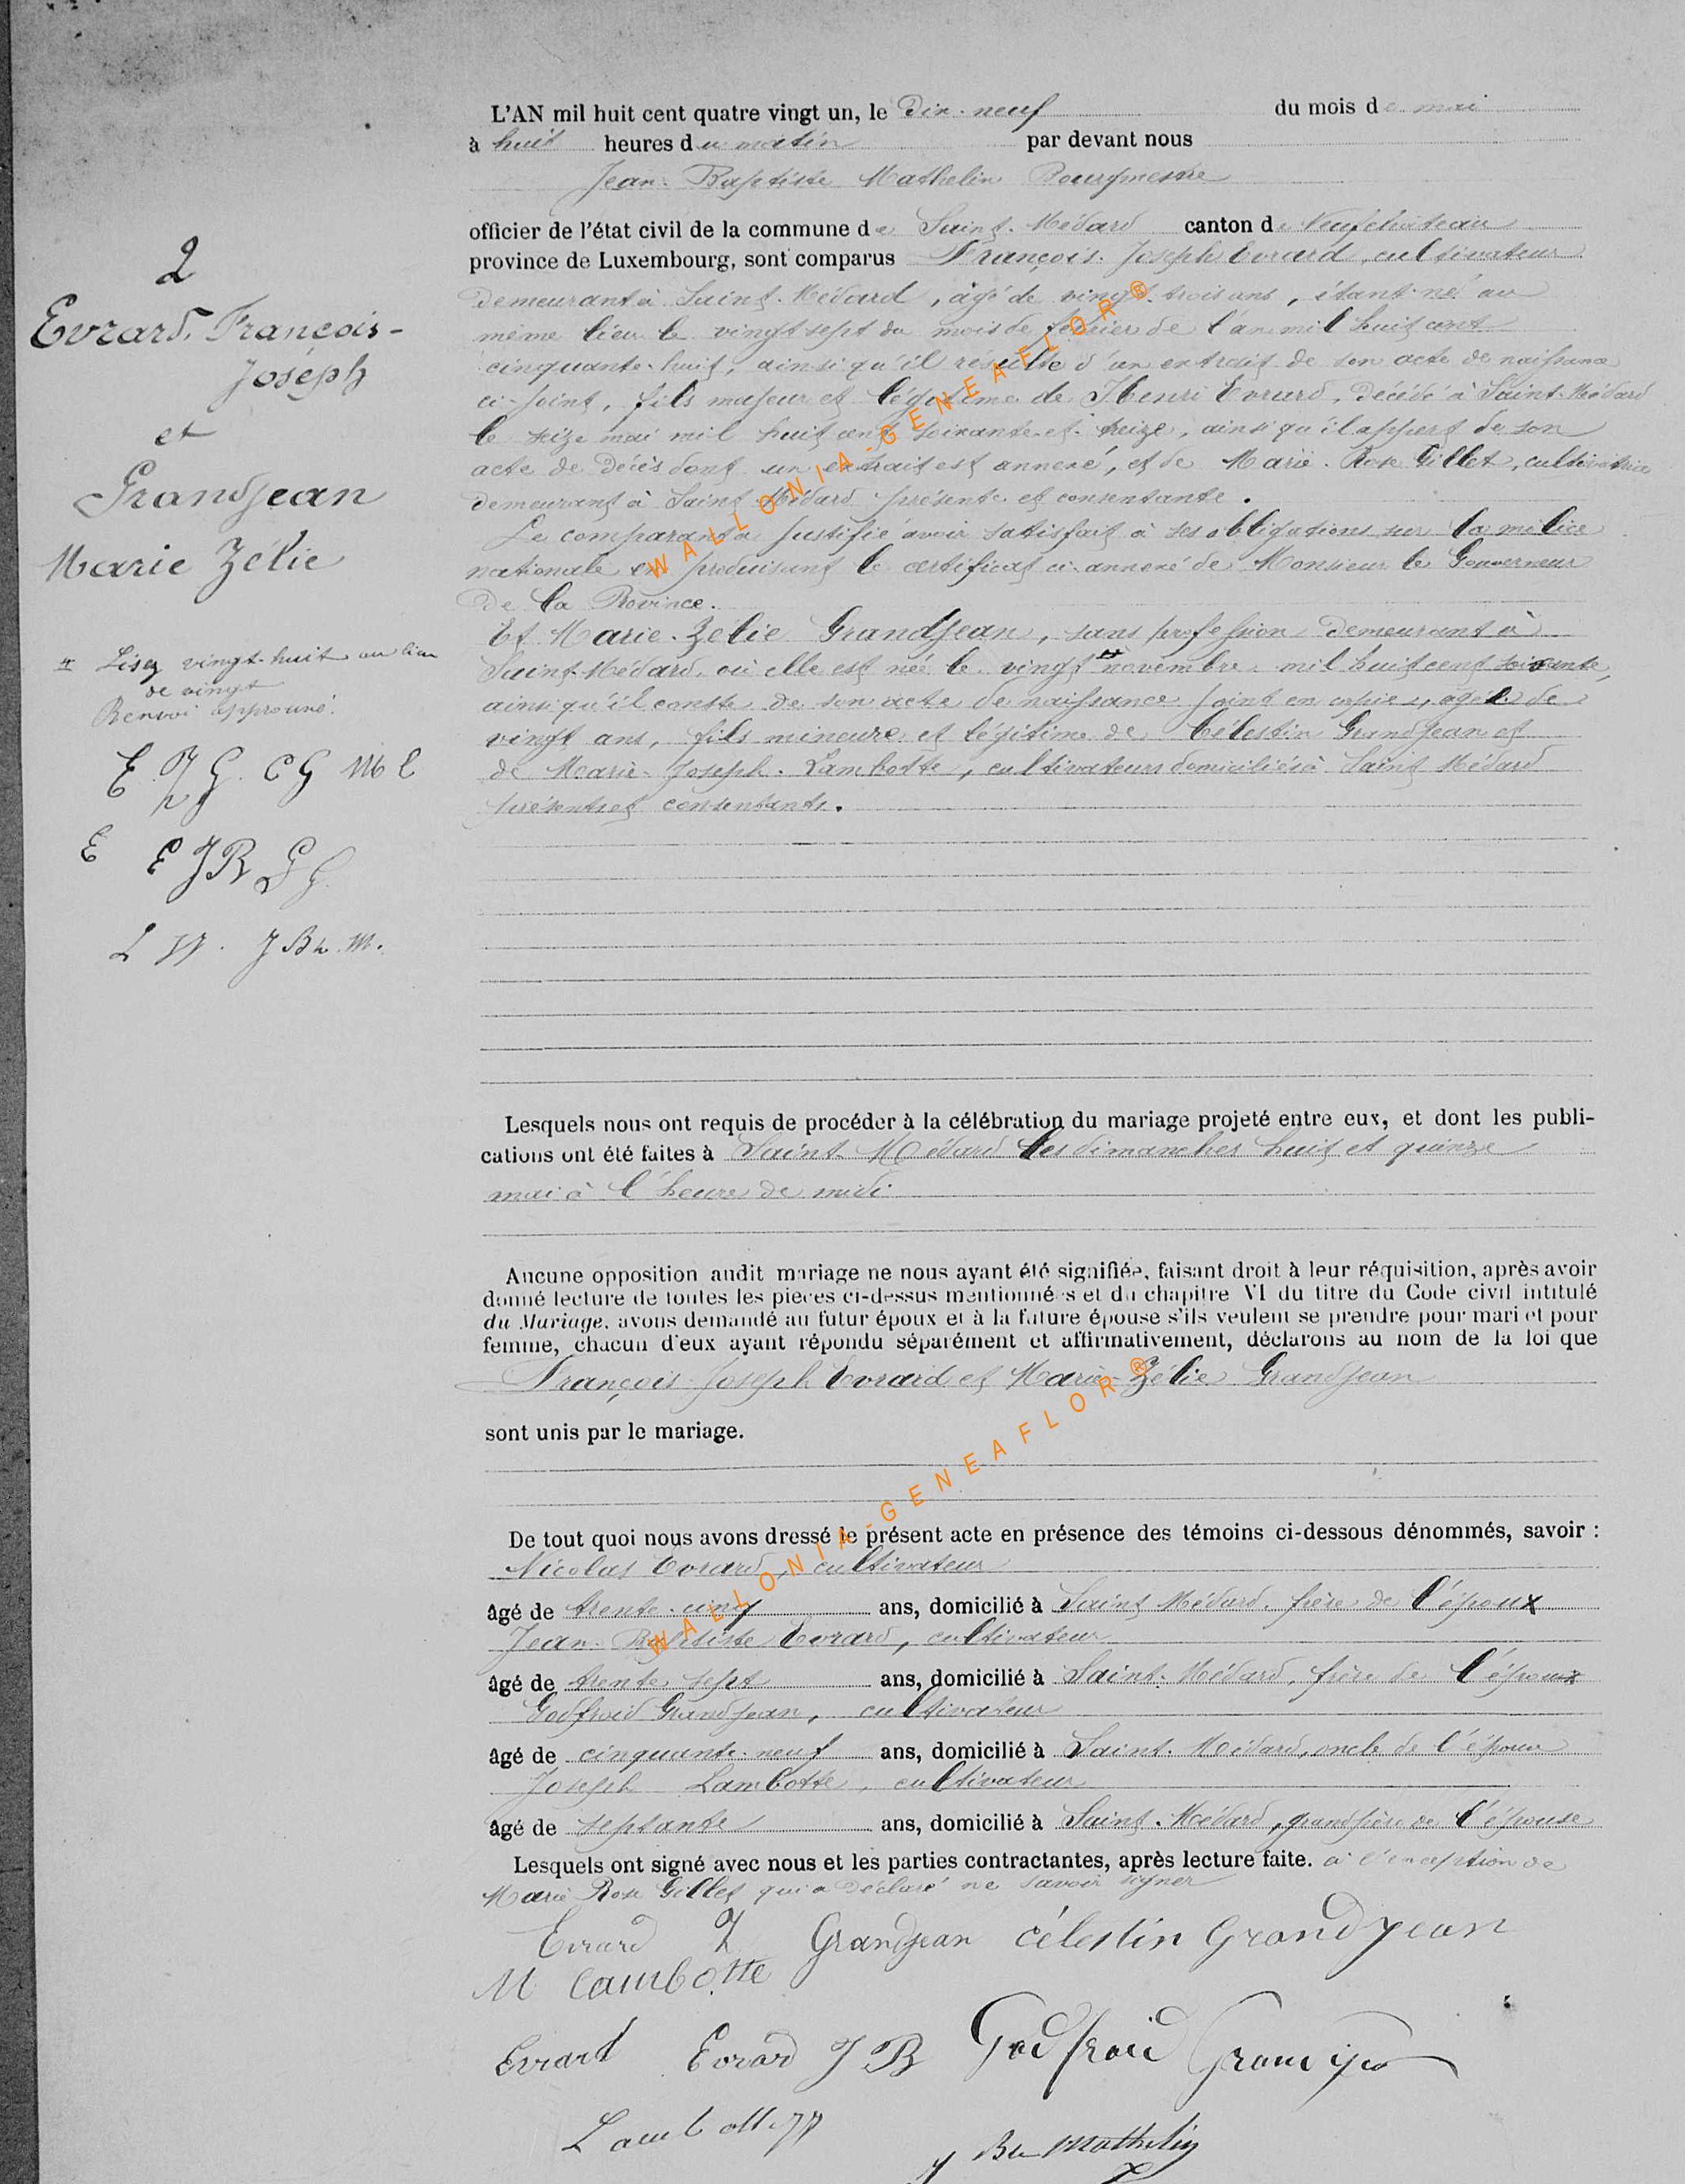 L'AN mil huit cent quatre vingt un, le Dix-neuf du mois de mai
à huit heures du matin par devant nous
Jean-Baptiste Mathelin Bourgmestre
officier de l'état civil de la commune de Saint-Médard canton de Neufchâteau
province de Luxembourg, sont comparus François-Joseph Evrard, cultivateur
demeurant à Saint-Médard, âgé de vingt-trois ans, étant né au
même lieu le vingt sept du mois de février de l'an mil huit cent
cinquante-huit, ainsi qu'il résulte d'un extrait de son acte de naissance
ci-joint, fils majeur et légitime de Henri Evrard, décédé à Saint-Médard
le seize mai mil huit cent soixante et treize, ainsi qu'il appert de son
acte de décès dont un extrait est annexé, et de Marie-Rose Gillet, cultivatrice
demeurant à Saint-Médard présente et consentante.
Le comparant a justifié avoir satisfait à ses obligations sur la milice
nationale en produisant le certificat ci-annexé de Monsieur le Gouverneur
de la Province.
Et Marie-Zélie Grandjean, sans profession demeurant à
Saint-Médard, où elle est née le vingt novembre mil huit cent soixante,
ainsi qu'il conste de son acte de naissance joint en copie, âgée de
vingt ans, fils mineure et légitime de Célestin Grandjean et
de Marie-Joseph Lambotte, cultivateurs domiciliés à Saint Médard
présents et consentants.
2
Evrard, François-
Joseph
et
Grandjean
Marie Zélie
Lisez vingt-huit au lieu
de vingt
Renvoi approuvé.
E. J G. C G M l
E E J B G G
L JJ. J Bte M.
Lesquels nous ont requis de procéder à la célébration du mariage projeté entre eux, et dont les publi-
cations ont été faites à Saint-Médard les dimanches huit et quinze
mai à l'heure de midi
Aucune opposition audit mariage ne nous ayant été signifiée, faisant droit à leur réquisition, après avoir
donné lecture de toutes les pièces ci-dessus mentionnées et du chapitre VI du titre du Code civil intitulé
du Mariage, avons demandé au futur époux et à la future épouse s'ils veulent se prendre pour mari et pour
femme, chacun d'eux ayant répondu séparément et affirmativement, déclarons au nom de la loi que
François-Joseph Evrard et Marie-Zélie Grandjean
sont unis par le mariage.
De tout quoi nous avons dressé le présent acte en présence des témoins ci-dessous dénommés, savoir :
Nicolas Evrard, cultivateur
âgé de trente-cinq ans, domicilié à Saint Médard, frère de l'époux
Jean-Baptiste Evrard, cultivateur
âgé de trente sept ans, domicilié à Saint-Médard, frère de l'époux
Godfroid Grandjean, cultivateur
âgé de cinquante-neuf ans, domicilié à Saint-Médard, oncle de l'époux
Joseph Lambotte, cultivateur
âgé de septante ans, domicilié à Saint-Médard, grand père de l'épouse
Lesquels ont signé avec nous et les parties contractantes, après lecture faite. à l'exception de
Marie Rose Gillet qui a déclaré ne savoir signer
Evrard J Grandjean Célestin Grandjean
M Lambotte
Evrard Evrard J B Godfroid Grandjean
Lambotte JJ
J Bte Mathelin
WALLONIA-GENEAFLOR®
WALLONIA-GENEAFLOR®